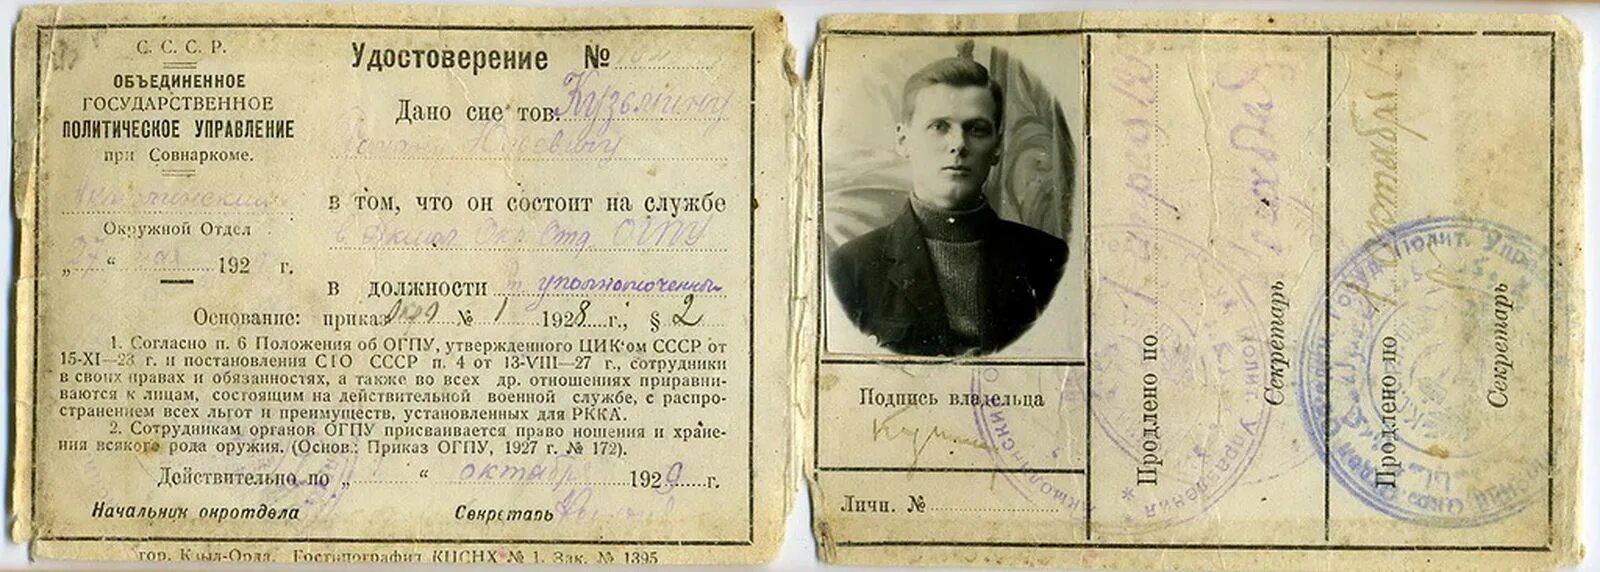 С. С. С. Р.
ОБЪЕДИНЕННОЕ
ГОСУДАРСТВЕННОЕ
ПОЛИТИЧЕСКОЕ УПРАВЛЕНИЕ
при Совнаркоме.
Акмолинский
Окружной Отдел
„27 “ мая 192 г.
Удостоверение №
Дано сие тов. Кузьмину
Юрьевичу
в том, что он состоит на службе
в Акмол Окр Отд ОГПУ
в должности п. уполномоченный
Основание: приказ № 1 1928 г., § 2
1. Согласно п. 6 Положения об ОГПУ, утвержденного ЦИК'ом СССР от
15-XI—23 г. и постановления СТО СССР п. 4 от 13-VIII—27 г., сотрудники
в своих правах и обязанностях, а также во всех др. отношениях приравни-
ваются к лицам, состоящим на действительной военной службе, с распро-
странением всех льгот и преимуществ, установленных для РККА.
2. Сотрудникам органов ОГПУ присваивается право ношения и хране-
ния всякого рода оружия. (Основ: Приказ ОГПУ, 1927 г. № 172).
Действительно по „1 “ октября 1929 г.
Начальник окротдела Секретарь
гор. Кзыл-Орда. Гостипография КЦСНХ № 1. Зак. № 1395
Подпись владельца
Личн. №
Продлено по 1
Секретарь
Продлено по 1 октября
Секретарь